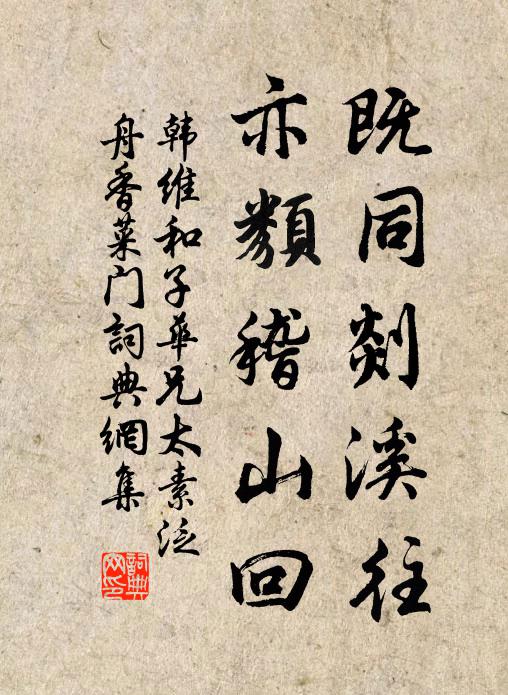 既同剡溪往
亦類稽山回
韩维和子华兄太素泛
舟香菜门詞典網集
詞典
网印